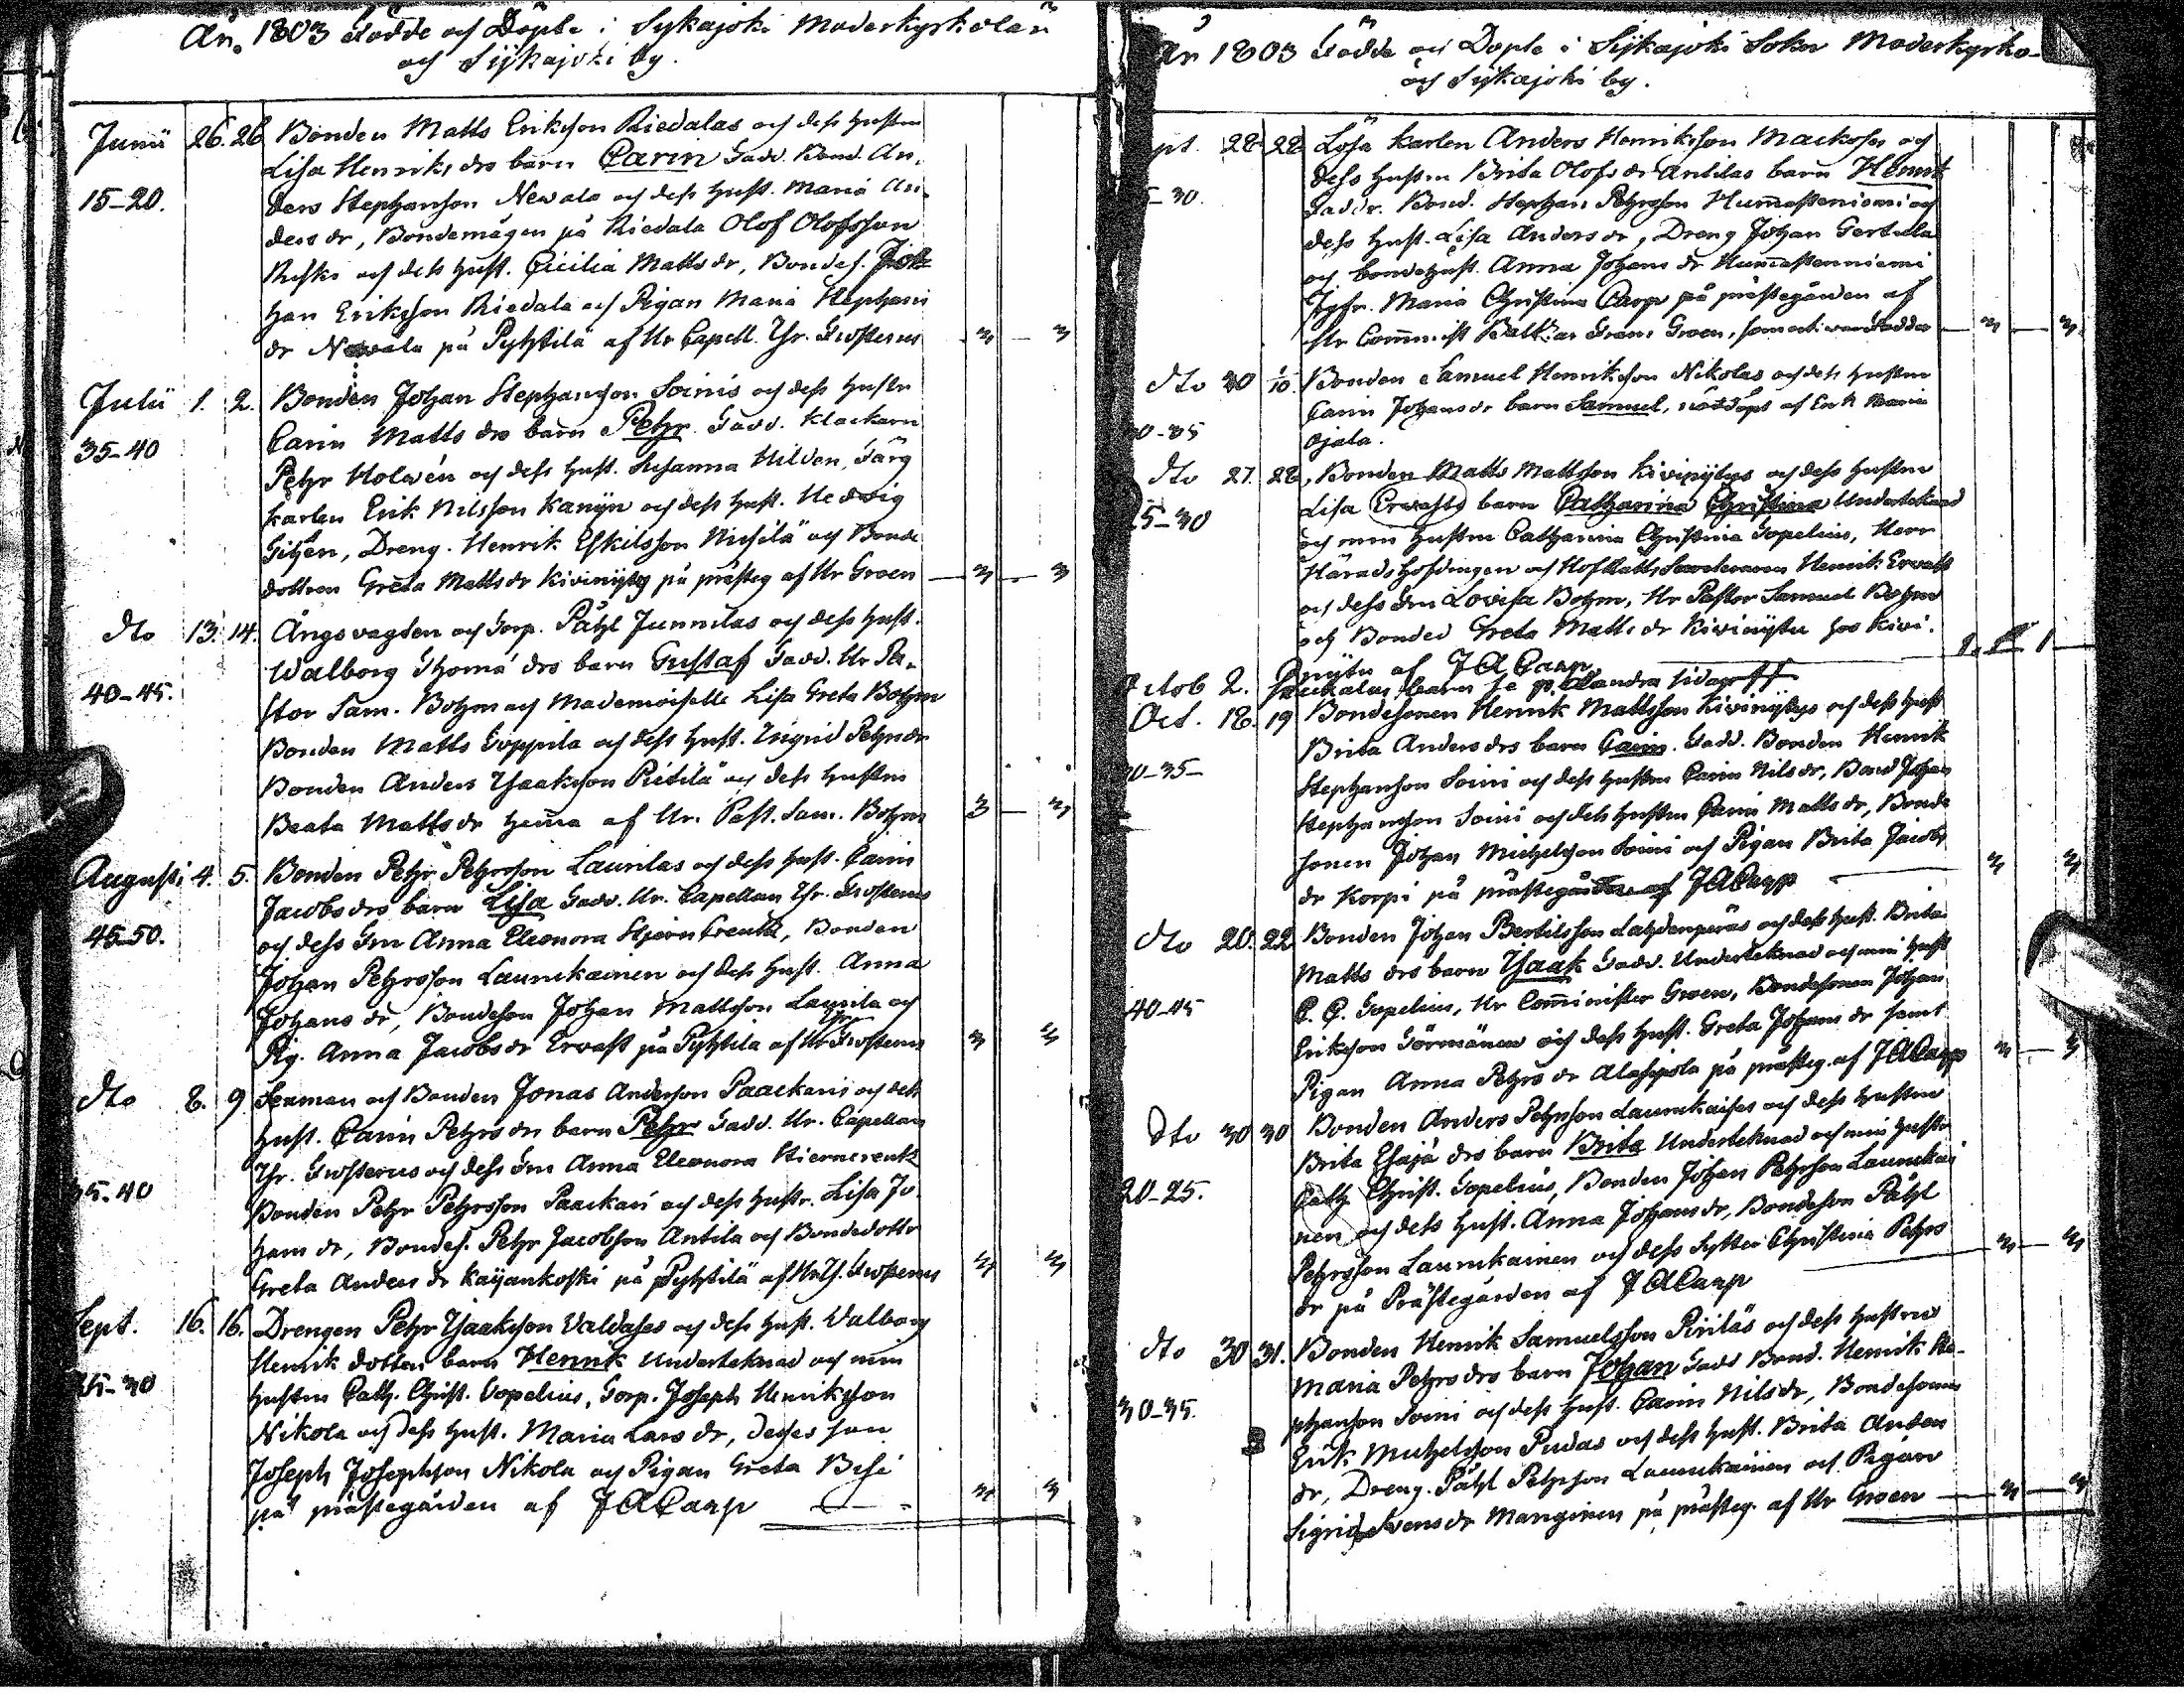 År 1803 Födde och Döpte i Sijkajoki Moderkyrkolän
och Sijkajoki by.
Junii 26. 26. Bonden Matts Eriksson Riedalas och dess hustru
Lisa Henriks drs barn Carin Fadd. Bond. An-
15-20. ders Stephansson Newala och dess hust. Maria An-
ders dr, Bondemågen på Riedala Olof Olofsson
och dess hust. Cicilia Matts dr, Bondes. Jo-
han Eriksson Riedala och Pigan Maria Stephans
dr Newala på Pyhtilä af Hr Capell. Thr. 3 3
Julii 1. 2. Bonden Johan Stephansson Soinis och dess hustru
Carin Matts drs barn Pehr Fadd. Klockarn
35-40 Pehr Holwén och dess hust. Susanna Hildén, Färg
karlen Erik Nilsson Kanijn och dess hust. Hedwig
Dreng. Henrik Eskilsson och Bonde
dottren Greta Matts dr Kivinijty på prästeg af Hr Groen 3 3
dto 13. 14. Ängsvagten och Torp. Påhl Junnilas och dess hust.
Walborg Thomæ drs barn Gustaf Fadd. Hr Pa-
40-45. stor Sam. Bohm och Mademoiselle Lisa Greta Bohm
Bonden Matts Toppila och dess hust. Sigrid Pehrs dr
Bonden Anders Isaaksson Pietilä och dess hustru
Beata Matts dr hema af Hr. Past. Sam. Bohm 3 3
Augusti 4. 5. Bonden Pehr Pehrsson Laurilas och dess hust. Carin
Jacobs drs barn Lisa Fadd. Hr. Capellan Thr.
45-50. och dess Fru Anna Eleonora Hjerncreutz, Bonden
Johan Pehrsson Laurukainen och dess hust. Anna
Johans dr, Bondeson Johan Mattsson Laurila och
Pig. Anna Jacobs dr Ervast på Pyhtila af Hr 3 3
dto 8. 9 Seaman och Bonden Jonas Andersson Paackaris och dess
hust. Carin Pehrs drs barn Pehr Fadd. Hr. Capellan
Thr. och dess Fru Anna Eleonora Hierncreutz
35-40 Bonden Pehr Pehrsson Paackari och dess hustr. Lisa Jo-
hans dr, Bondes. Pehr Jacobsson Antila och Bondedottr
Greta Anders dr Kaijankoski på Pyhtilä af Hr 3 3
Sept. 16. 16. Drengen Pehr Isaaksson Valdases och dess hust. Walborg
Henrik dotters barn Henrik Underteknad och min
25-30 hustru Cath. Christ. Topelius, Torp. Joseph Henriksson
Nikola och dess hust. Maria Lars dr, desses son
Joseph Josephsson Nikola och Pigan Greta Bisi
på prästegården af J A Carp 3 3
År 1803 Födde och Döpte i Sijkajoki Sokn Moderkyrko-
och Sijkajoki by.
Sept. 28 28 Lösa Karlen Anders Henriksson Mackoses och
dess hustru Brita Olofs dr Antilas barn Henrik
25-30. Faddr. Bond. Stephan Pehrsson Hummastenniemi och
dess hust. Lisa Anders dr, Dreng Johan Gertula
och bondehust. Anna Johans dr Hummastenniemi
Jgfr. Maria Christina Carp på prästegården af
Hr Comminist Groen, som ock war Fadder 3 3
dto 30 1/10. Bonden Samuel Henriksson Nikolas och dess hustru
Carin Johans dr barn Samuel, nöddöpt af Maria
30-35 Ojala.
dto 27. 28. Bonden Matts Mattsson Kivinijtys och dess hustru
25-30 Lisa Ervasts barn Catharina Christina Undertecknad
och min hustru Catharina Christina Topelius, Herr
Häradshöfdingen och Henrik Ervast
och dess Fru Lovisa Bohm, Hr Pastor Samuel Bohm
och Bonded Greta Matts dr Kivinijty hos Kivi-
nijty af J A Carp 1 1
Octob 2. barn se på andra sidan
Oct. 18. 19 Bondesonen Henrik Mattsson Kivinijtys och dess hust
Brita Anders drs barn Carin. Fadd. Bonden Henrik
30-35- Stephansson Soini och dess hustru Carin Nils dr, Bond Johan
Stephansson Soini och dess hustru Carin Matts dr, Bonde
sonen Johan Michelsson Soini och Pigan Brita Jacobs
dr Korpi på prästegården af J A Carp 3 3
dto 20. 22 Bonden Johan Bertilsson Lahdenperäs och dess hust. Brita
Matts drs barn Isaak Fadd. Undertecknad och min hust
40-45 C. C. Topelius, Hr Comminister Groen, Bondesonen Johan
Eriksson Törmänen och dess hust. Greta Johans dr samt
Pigan Anna Pehrs dr Alasipola på prästeg. af J A Carp 3 3
Dto 30 30 Bonden Anders Pehrsson Laurukaises och dess hustru
Brita Esajæ drs barn Brita Undertecknad och min hustru
20-25. Cath Christ. Topelius, Bonden Johan Pehrsson Laurukai
nen och dess hust. Anna Johans dr, Bondeson Påhl
Pehrsson Laurukainen och dess syster Christina Pehrs
dr på Prästegården af J A Carp 3 3
dto 30 31. Bonden Henrik Samuelsson Piriläs och dess hustru
Maria Pehrs drs barn Johan Fadd Bond. Henrik Ste-
30-35. phansson Soini och dess hust. Carin Nils dr, Bondesonen
Erik Michelsson Pudas och dess hust. Brita Anders
dr, Dreng. Påhl Pehrsson Laurukainen och Pigan
Sigrid Svens dr Manginen på prästeg. af Hr Groen 3 3